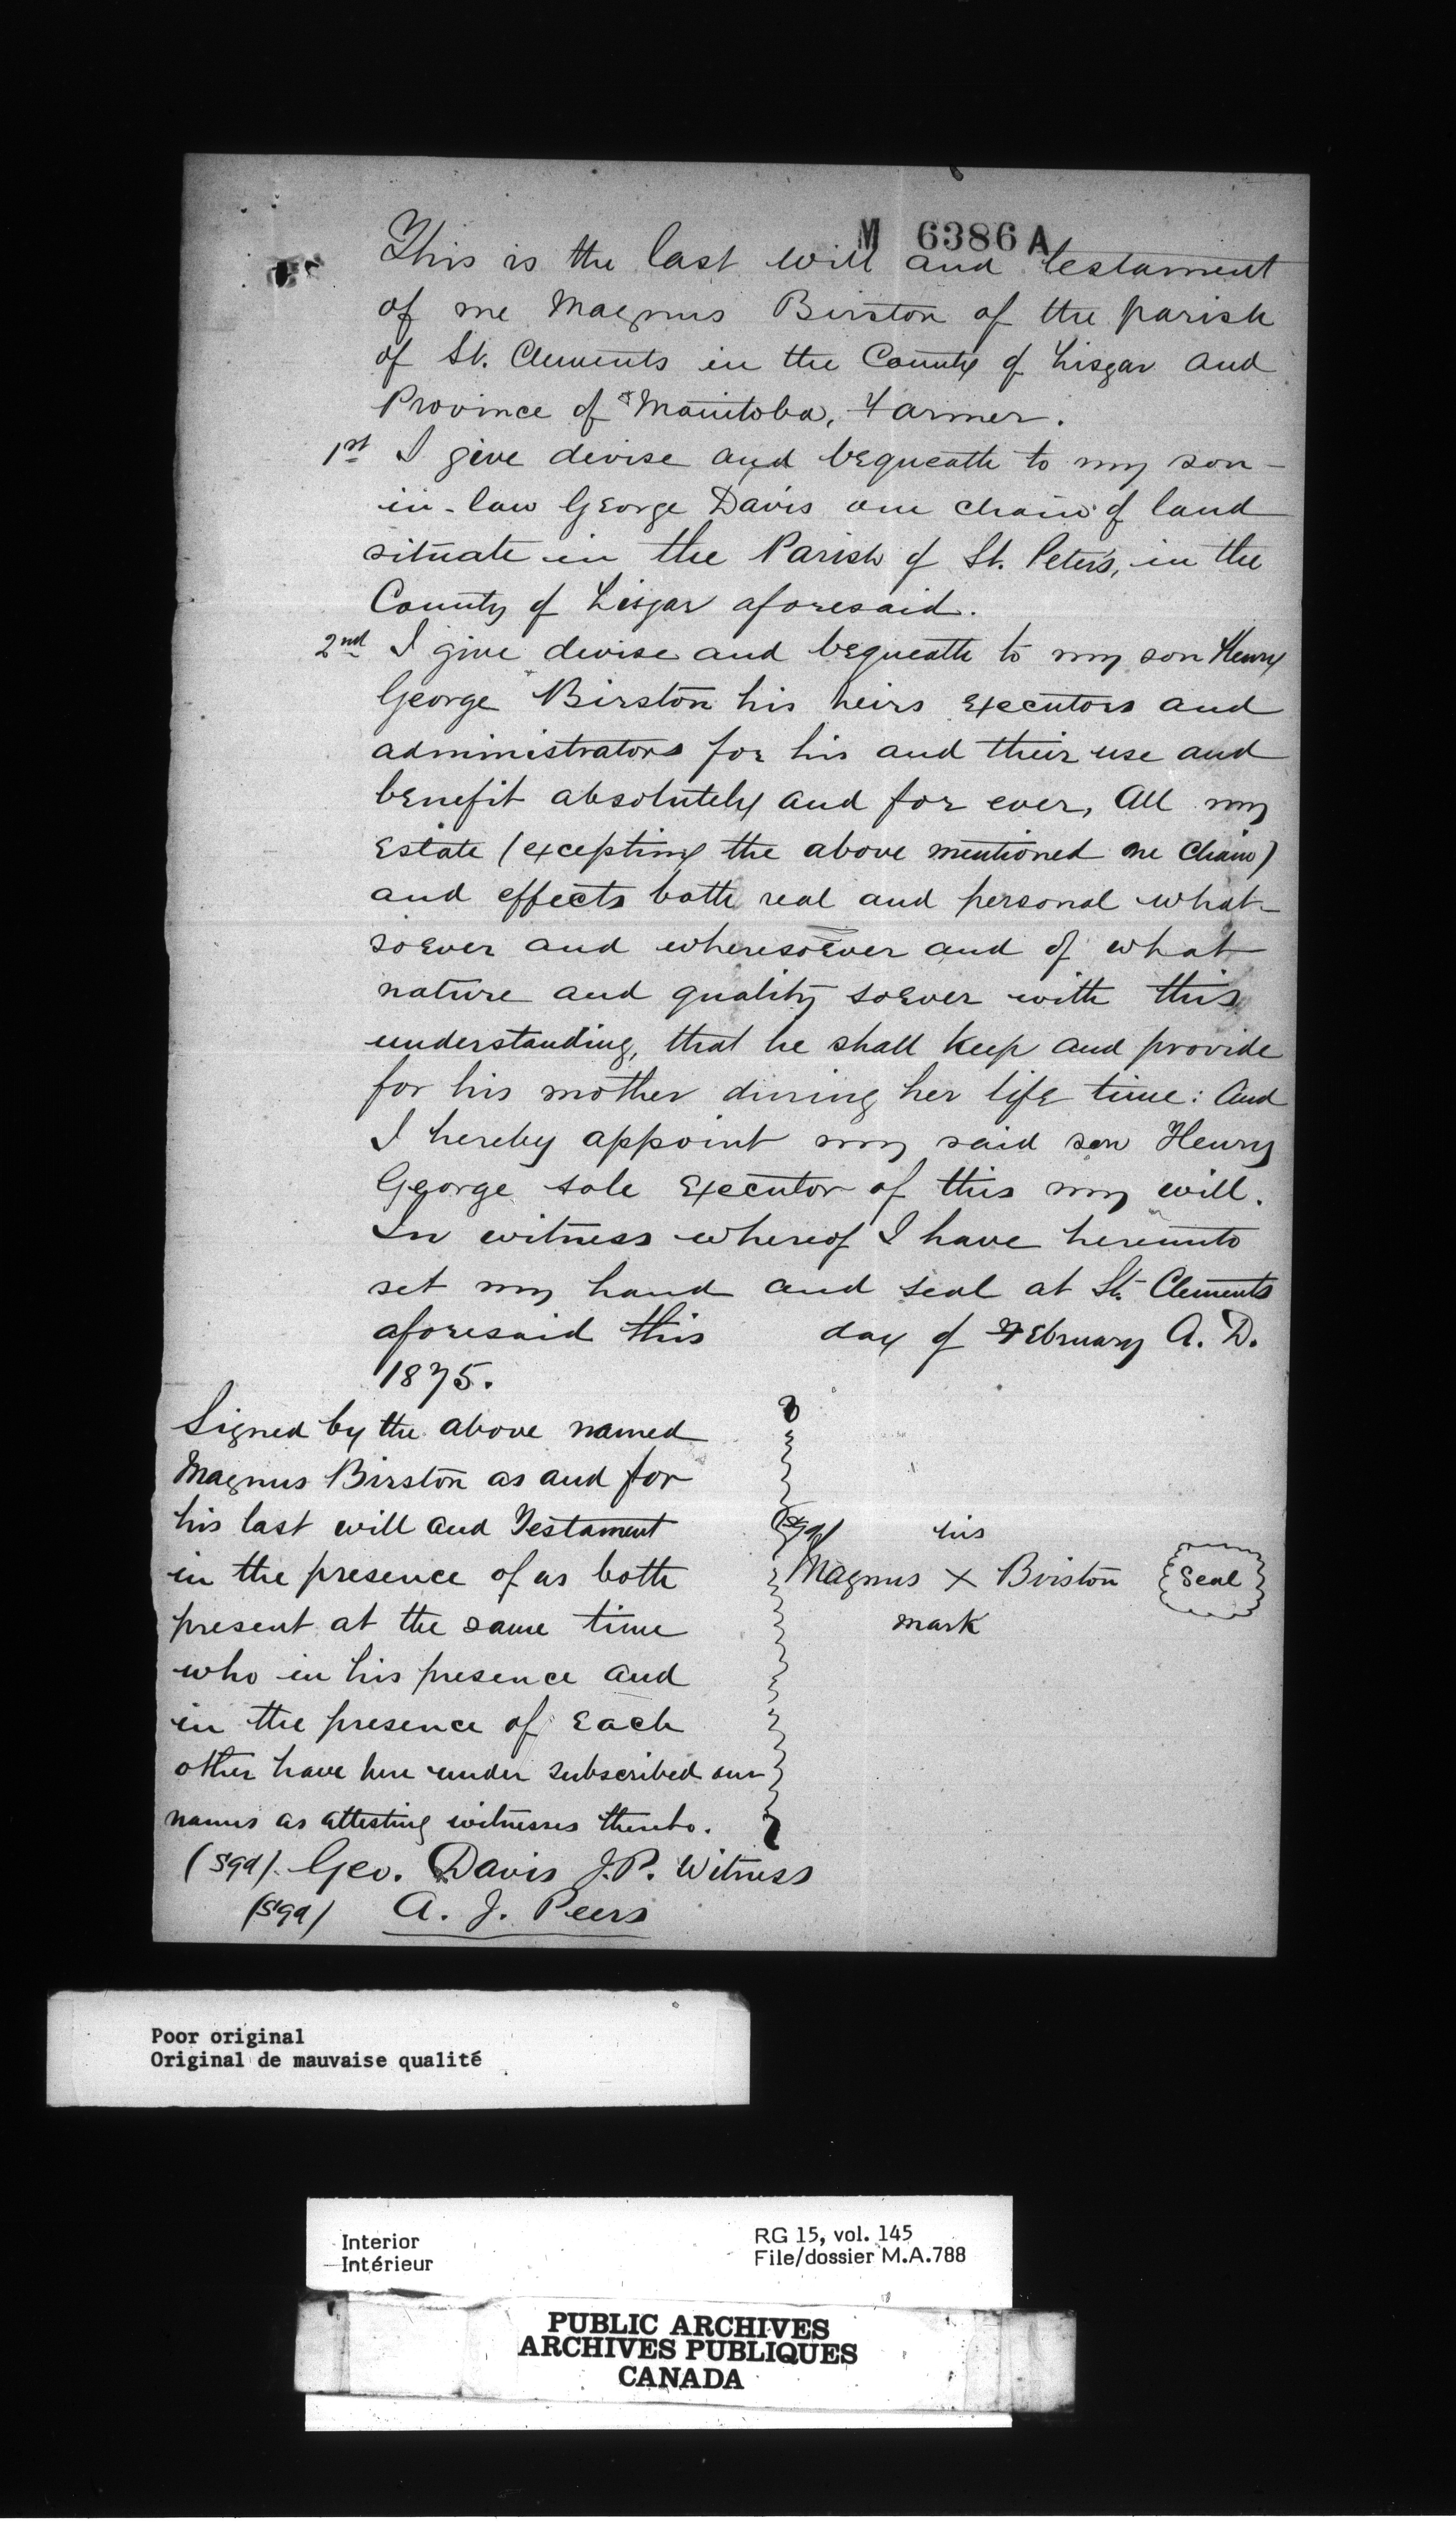 M 6386 A
This is the last will and testament
of me Magnus Birston of the parish
of St. Clements in the County of Lisgar and
Province of Manitoba, Farmer.
1st I give devise and bequeath to my son-
in-law George Davis one chain of land
situate in the Parish of St. Peter's, in the
County of Lisgar aforesaid.
2nd I give devise and bequeath to my son Henry
George Birston his heirs executors and
administrators for his and their use and
benefit absolutely and for ever, All my
Estate (excepting the above mentioned one chain)
and effects both real and personal what-
soever and wheresoever and of what
nature and quality soever with this
understanding, that he shall keep and provide
for his mother during her life time: And
I hereby appoint my said son Henry
George sole Executor of this my will.
In witness whereof I have hereunto
set my hand and seal at St. Clements
aforesaid this day of February A. D.
1875.
Signed by the above named
Magnus Birston as and for
his last will and Testament
in the presence of us both
present at the same time
who in his presence and
in the presence of Each
other have here under subscribed our
names as attesting witnesses thereto.
(sgd) his
Magnus X Birston Seal
mark
(sgd). Geo. Davis J.P. Witness
(sgd) A. J. Peers
Poor original
Original de mauvaise qualité
Interior
Intérieur
RG 15, vol. 145
File/dossier M.A.788
PUBLIC ARCHIVES
ARCHIVES PUBLIQUES
CANADA